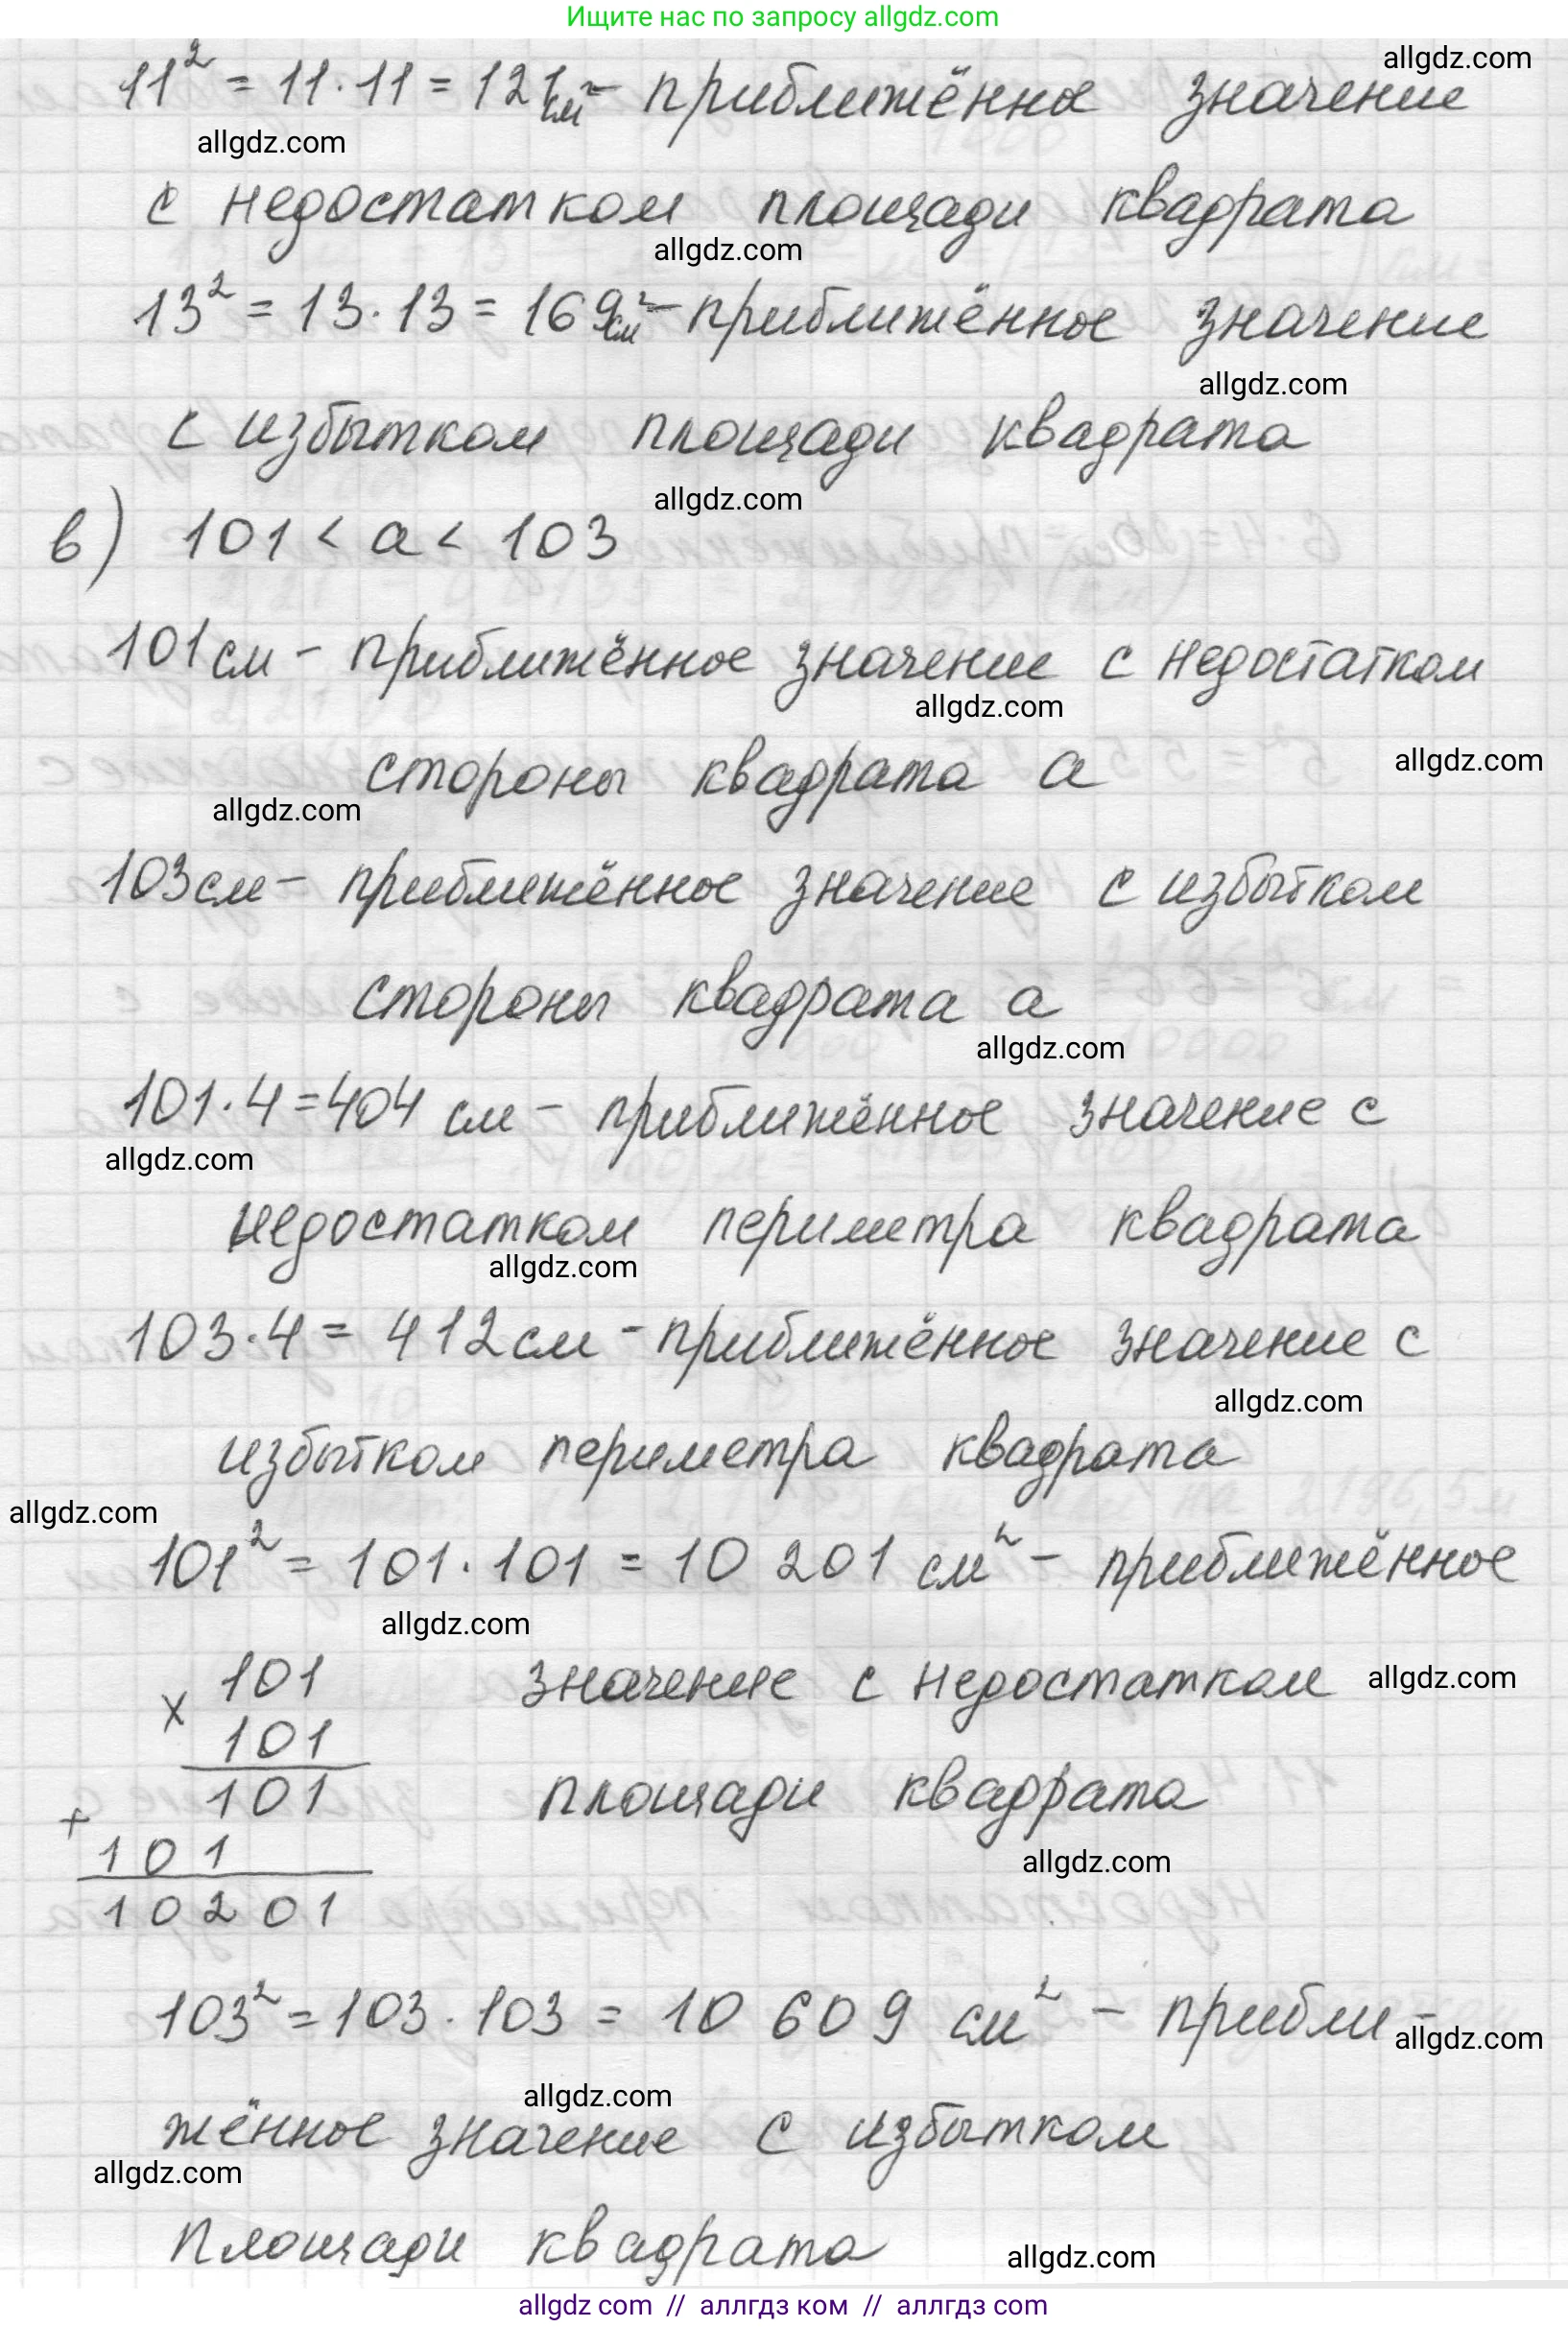 Ищите нас по запросу allgdz.com
allgdz.com
11² = 11·11 = 121 см² - приближённое значение
allgdz.com
с недостатком площади квадрата
allgdz.com
13² = 13·13 = 169 см² - приближённое значение
allgdz.com
с избытком площади квадрата
allgdz.com
в) 101 < a < 103
101 см - приближённое значение с недостатком
allgdz.com
стороны квадрата a
allgdz.com
allgdz.com
103 см - приближённое значение с избытком
стороны квадрата a
allgdz.com
101·4=404 см - приближённое значение с
allgdz.com
недостатком периметра квадрата
allgdz.com
103·4= 412 см - приближённое значение с
allgdz.com
избытком периметра квадрата
allgdz.com
101² = 101·101 = 10 201 см² - приближённое
allgdz.com
х 101 значение с недостатком
allgdz.com
101
101 площади квадрата
+
101
allgdz.com
10201
103² = 103·103 = 10 609 см² - прибли-
allgdz.com
allgdz.com
жённое значение с избытком
allgdz.com
площади квадрата
allgdz.com
allgdz com // аллгдз ком // аллгдз com